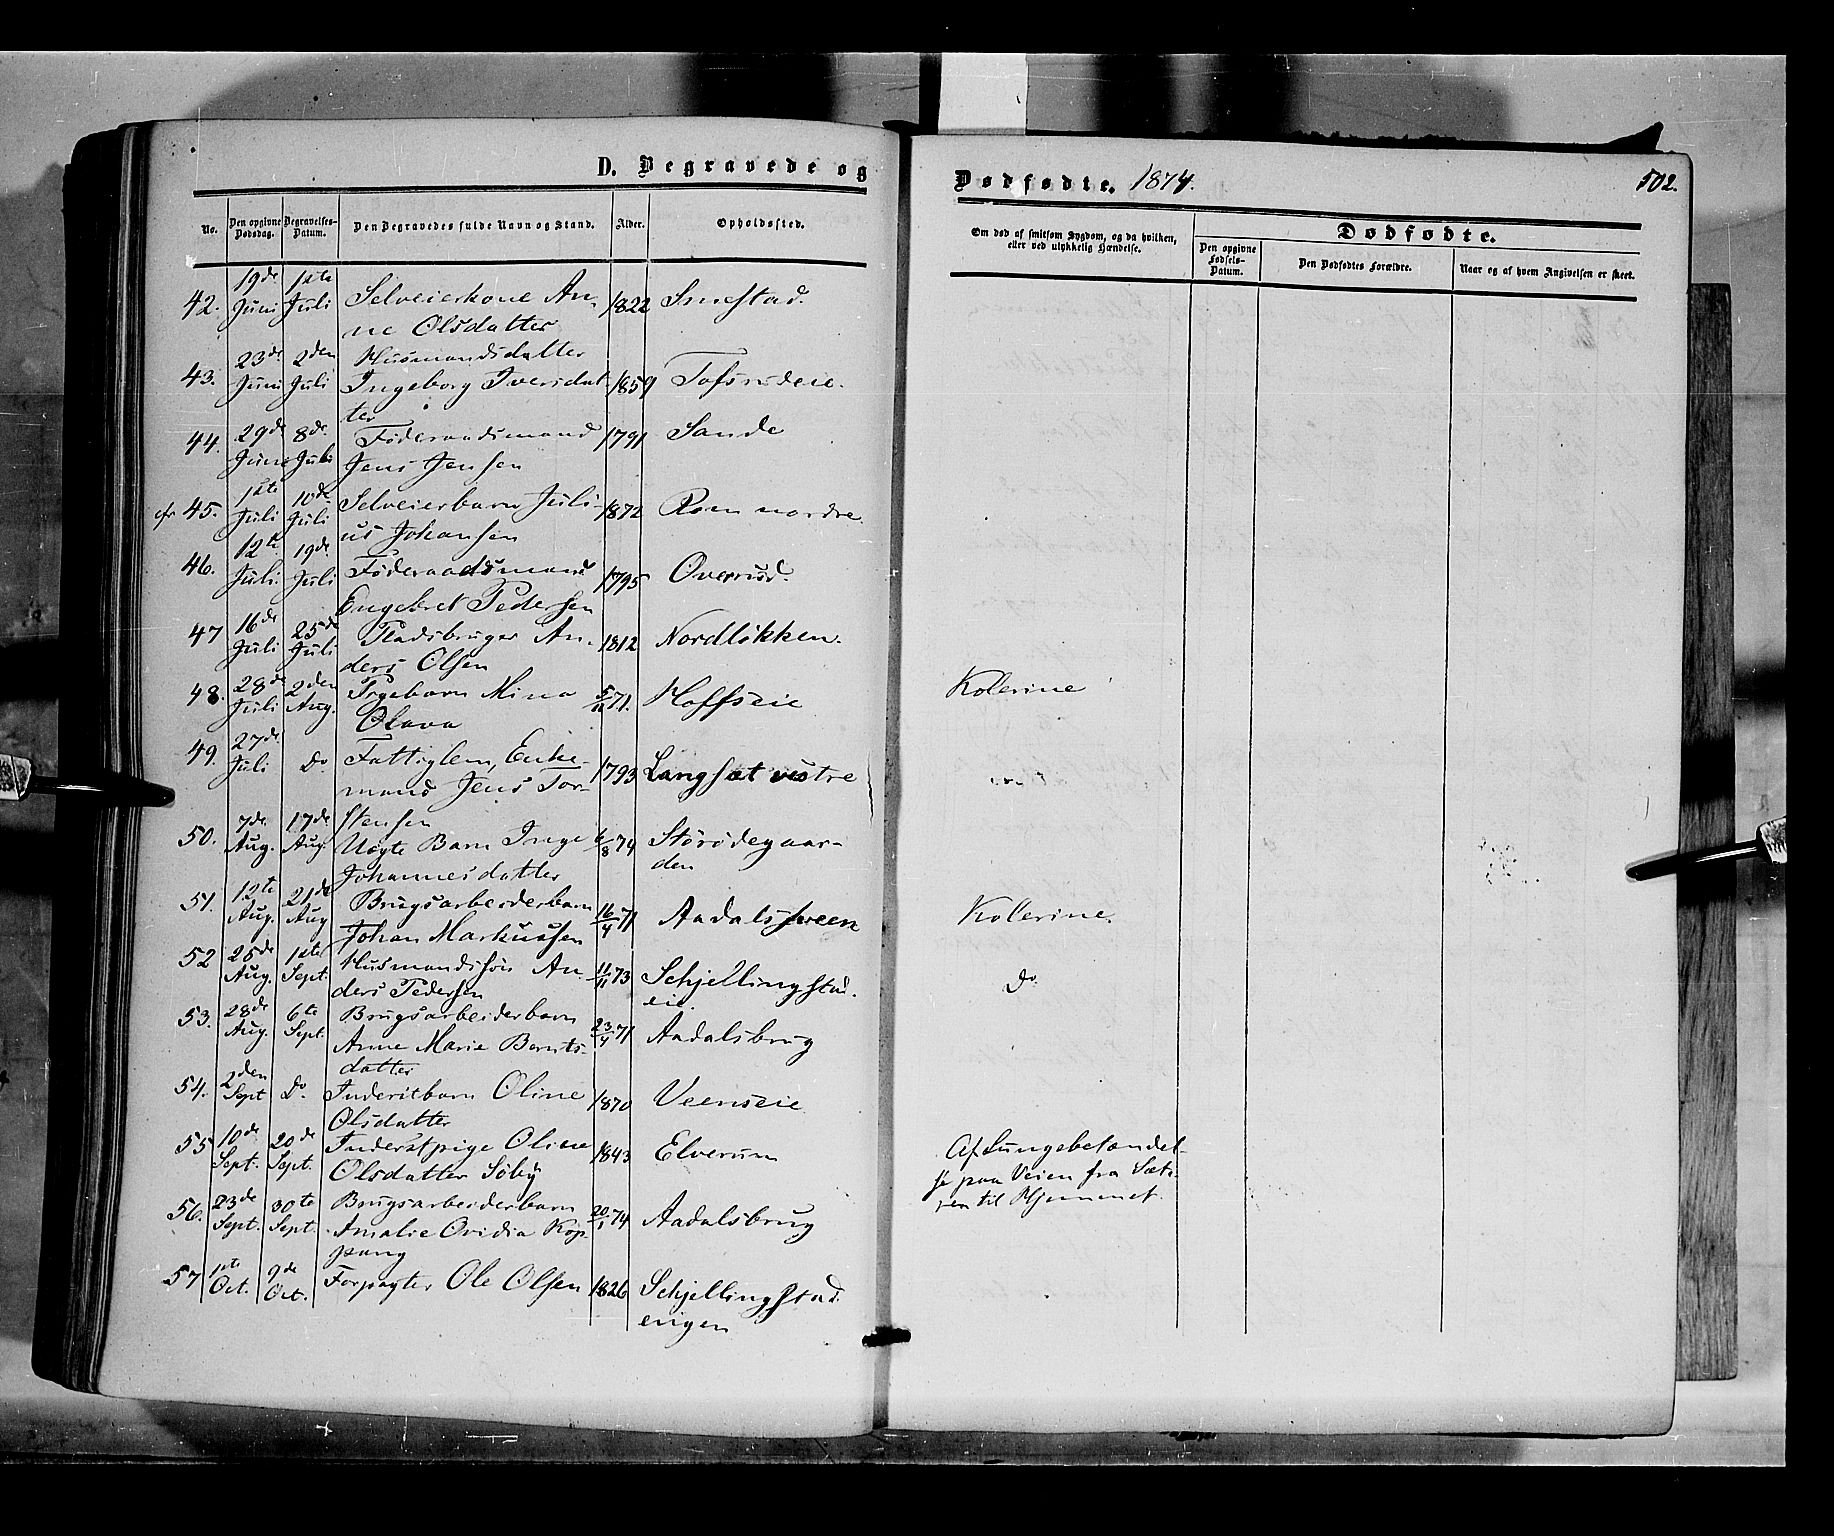 D. Begravede og
Dødfødte. 1874.
502.
No. Den opgivne Dødsdag. Begravelses-Datum. Den Begravedes fulde Navn og Stand. Alder. Opholdssted.
Om død af smitsom Sygdom, og da hvilken, eller ved ulykkelig Hændelse.
Dødfødte.
Den opgivne Fødsels-Datum. Den Dødfødtes Forældre. Naar og af hvem Angivelsen er skeet.
19de 1ste
42. Juni Juli Selveierkone An- 1822 Smestad.
ne Olsdatter
23de 2den Husmandsdatter
43. Juni Juli Ingeborg Iversdat- 1859
ter
29de 8de Føderaadsmand 1791 Sande
44. Juni Juli Jens Jensen
1ste 10de
cfr 45. Juli Juli Selveierbarn Juli- 1872 Rom nordre
us Johansen
12te 19de
46. Juli Juli Føderaadsmand 1795 Overud.
Engebret Pedersen
16de 25de
47 Juli Juli Pladsbruger An- 1812 Nordløkken.
ders Olsen
28de 2den
48. Juli Aug. Pigebarn Mina 71. Hoffseie Kolerine
Olava
27de
49. Juli Do Fattiglem, Enke- 1793 Langsæt vestre
mand Jens Tor-
stensen
50. 7de Aug. 17de Aug. Uægte Barn Inge 6/8 74 Storødegaar-
den
Johannesdatter
51. 12te Aug. 21de Aug Brugsarbeiderbarn 16/4 71 Aadalssveen Kolerine.
Johan Markussen
52 Aug. 1ste Sept. Husmandssøn An- 11/11 73 Schjellingstad- Do
ders Pedersen eie
53. 28de Aug. 6te Sept. Brugsarbeiderbarn 23/4 71 Aadalsbrug
Anne Marie Bernts-
datter
54. 2den Sept Do. Inderstbarn Oline 1870 Veenseie
Olsdatter
55 10de Sept. 20de Sept. Inderstpige Oline 1843 Elverum
Olsdatter Søby
Af Lungebetændel-
se paa Veien fra Sæt-
ren til Hjemmet.
56. 23de Sept. 30te Sept. Brugsarbeiderbarn 20/1 74 Aadalsbrug
Amalie Ovidia Kop-
pang
57 1ste Oct. 9de Oct. Forpagter Ole Olsen 1826 Schjellingstad
engen